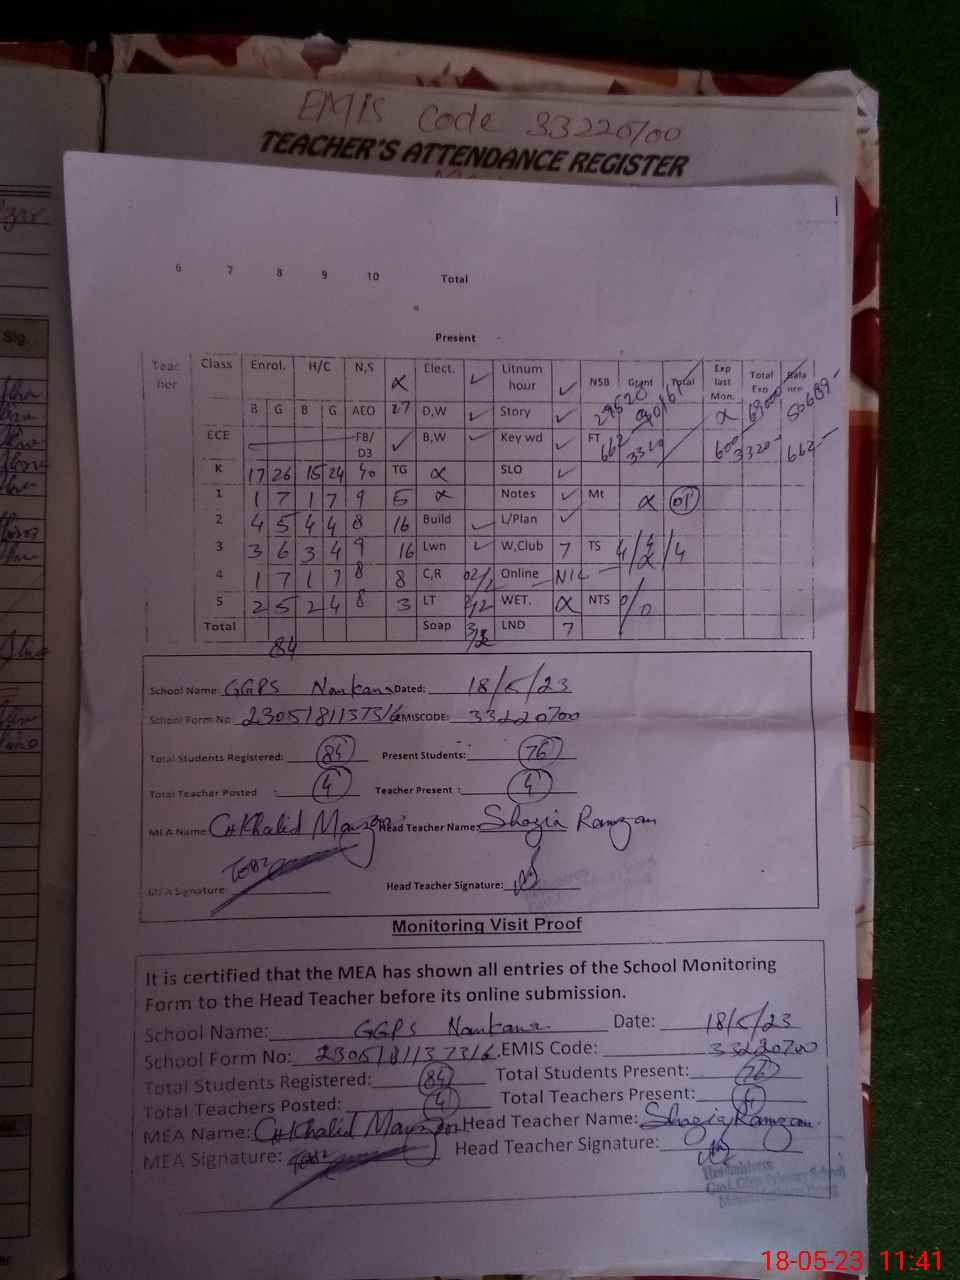 EMIS Code 33220700
TEACHER'S ATTENDANCE REGISTER
Sig.
6 7 8 9 10 Total
Present
Teac her Class Enrol. H/C N,S α Elect. ✓ Litnum hour ✓ NSB Grant Total Exp last Mon. Total Exp. Bala nce
B G B G AEO 27 D,W ✓ Story ✓ α
ECE FB/ D3 ✓ B,W ✓ Key wd ✓ FT 662 3320 600 3320 662
K 17 26 15 24 40 TG α SLO ✓
1 1 7 1 7 9 5 α Notes ✓ Mt α 01
2 4 5 4 4 8 16 Build ✓ L/Plan ✓
3 3 6 3 4 9 16 Lwn ✓ W,Club 7 TS 4/4/4
4 1 7 1 7 8 8 C,R 02/2 Online NIL α
5 2 5 2 4 8 3 LT 2/2 WET. α NTS 0/0
Total Soap LND 7
84
School Name: GGPS Nankana Dated: 18/5/23
School Form No: 23051811373/6 EMISCODE: 33220700
Total Students Registered: 84 Present Students: 76
Total Teacher Posted : 4 Teacher Present : 4
MEA Name: CH Khalid Head Teacher Name: Shazia Ramzan
MEA Signature: Head Teacher Signature:
Monitoring Visit Proof
It is certified that the MEA has shown all entries of the School Monitoring
Form to the Head Teacher before its online submission.
School Name: GGPS Nankana Date: 18/5/23
School Form No: 23051811373/6. EMIS Code: 33220700
Total Students Registered: 84 Total Students Present: 76
Total Teachers Posted: 4 Total Teachers Present: 4
MEA Name: CH Khalid Head Teacher Name: Shazia Ramzan.
MEA Signature: Head Teacher Signature:
Headmistress
Govt. Girls Primary School
18-05-23 11:41